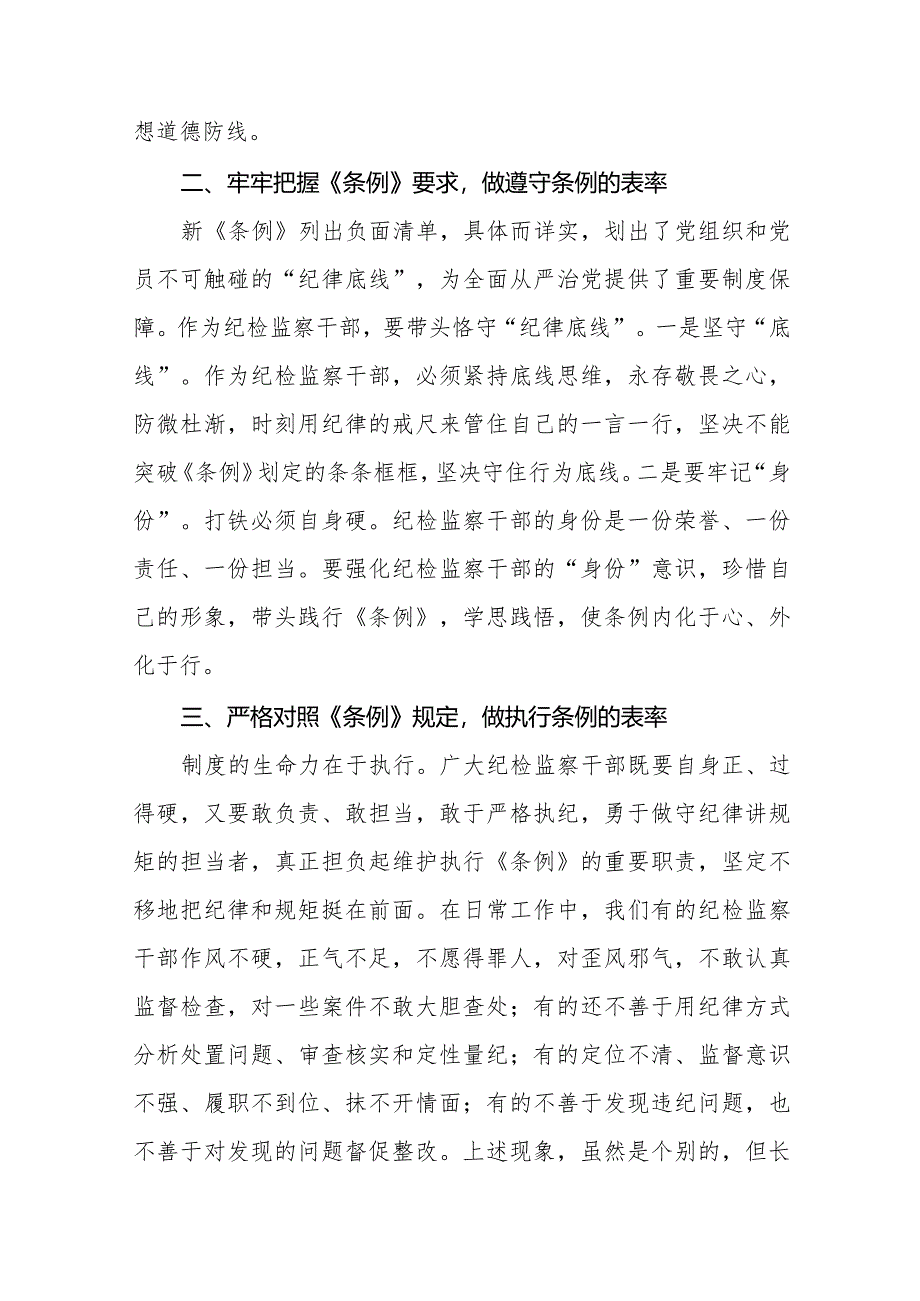 想道德防线。
二、牢牢把握《条例》要求，做遵守条例的表率
新《条例》列出负面清单，具体而详实，划出了党组织和党
员不可触碰的“纪律底线”，为全面从严治党提供了重要制度保
障。作为纪检监察干部，要带头恪守“纪律底线”。一是坚守“底
线”。作为纪检监察干部，必须紧持底线思维，永存敬畏之心，
防微杜渐，时刻用纪律的戒尺来管住自己的一言一行，坚决不能
突破《条例》划定的条条框框，坚决守住行为底线。二是要牢记“身
份”。打铁必须自身硬。纪检监察干部的身份是一份荣誉、一份
责任、一份担当。要强化纪检监察干部的“身份”意识，珍惜自
己的形象，带头践行《条例》，学思践悟，使条例内化于心、外
化于行。
三、严格对照《条例》规定，做执行条例的表率
制度的生命力在于执行。广大纪检监察干部既要自身正、过
得硬，又要敢负责、敢担当，敢于严格执纪，勇于做守纪律讲规
矩的担当者，真正担负起维护执行《条例》的重要职责，坚定不
移地把纪律和规矩挺在前面。在日常工作中，我们有的纪检监察
干部作风不硬，正气不足，不愿得罪人，对歪风邪气，不敢认真
监督检查，对一些案件不敢大胆查处；有的还不善于用纪律方式
分析处置问题、审查核实和定性量纪；有的定位不清、监督意识
不强、履职不到位、抹不开情面；有的不善于发现违纪问题，也
不善于对发现的问题督促整改。上述现象，虽然是个别的，但长